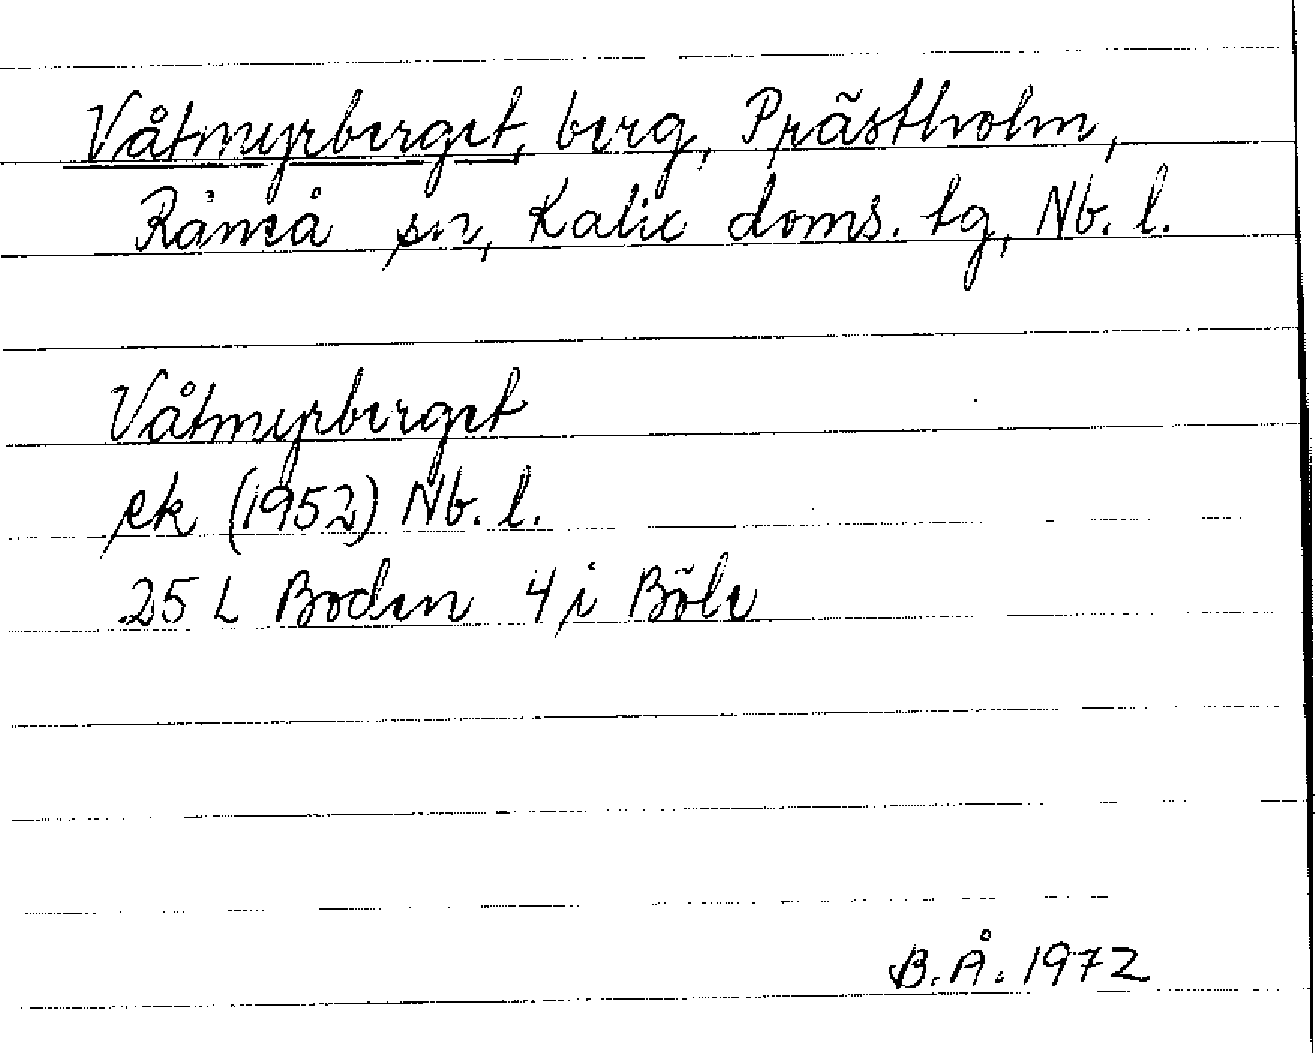 Våtmyrberget, berg, Prästholm,
Råneå sn, Kalix doms. tg, Nb. l.
Våtmyrberget
ek (1952) Nb. l.
25 L Boden 4 i Böle
B.Å. 1972